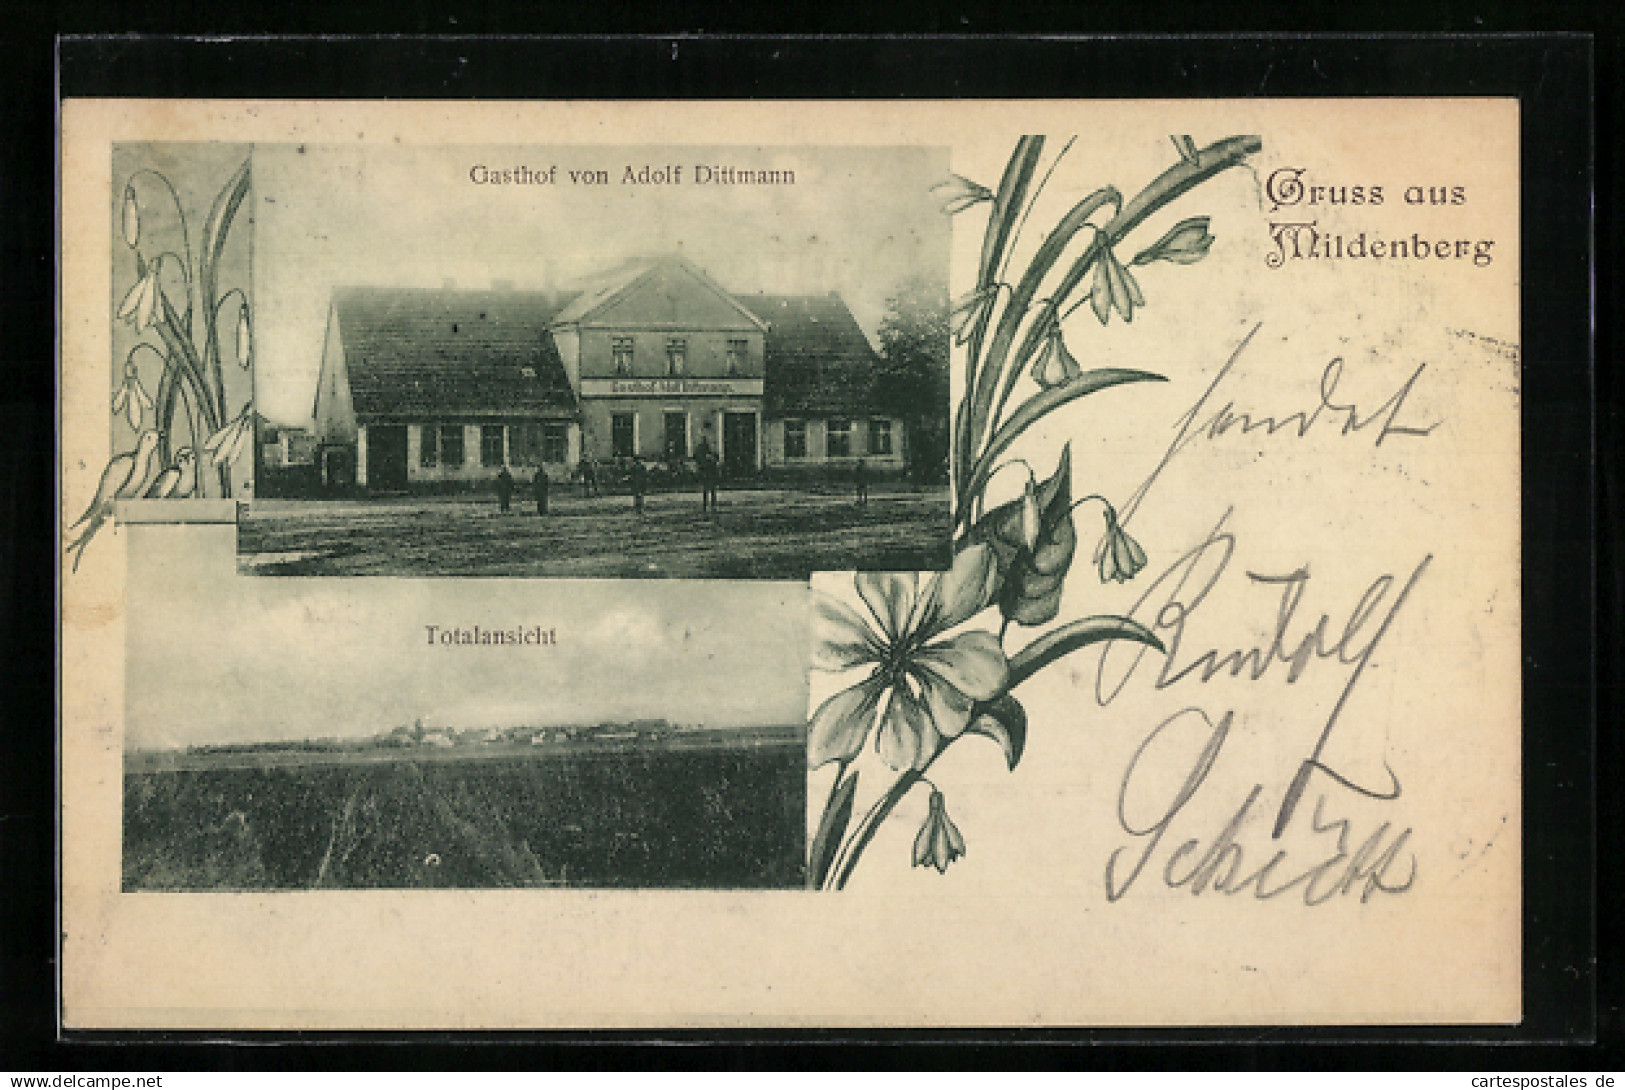 Gasthof von Adolf Dittmann
Gasthof Adolf Dittmann.
Totalansicht
Gruss aus
Mildenberg
sendet
Rudolf
Schütt
delcampe.net
cartespostales de